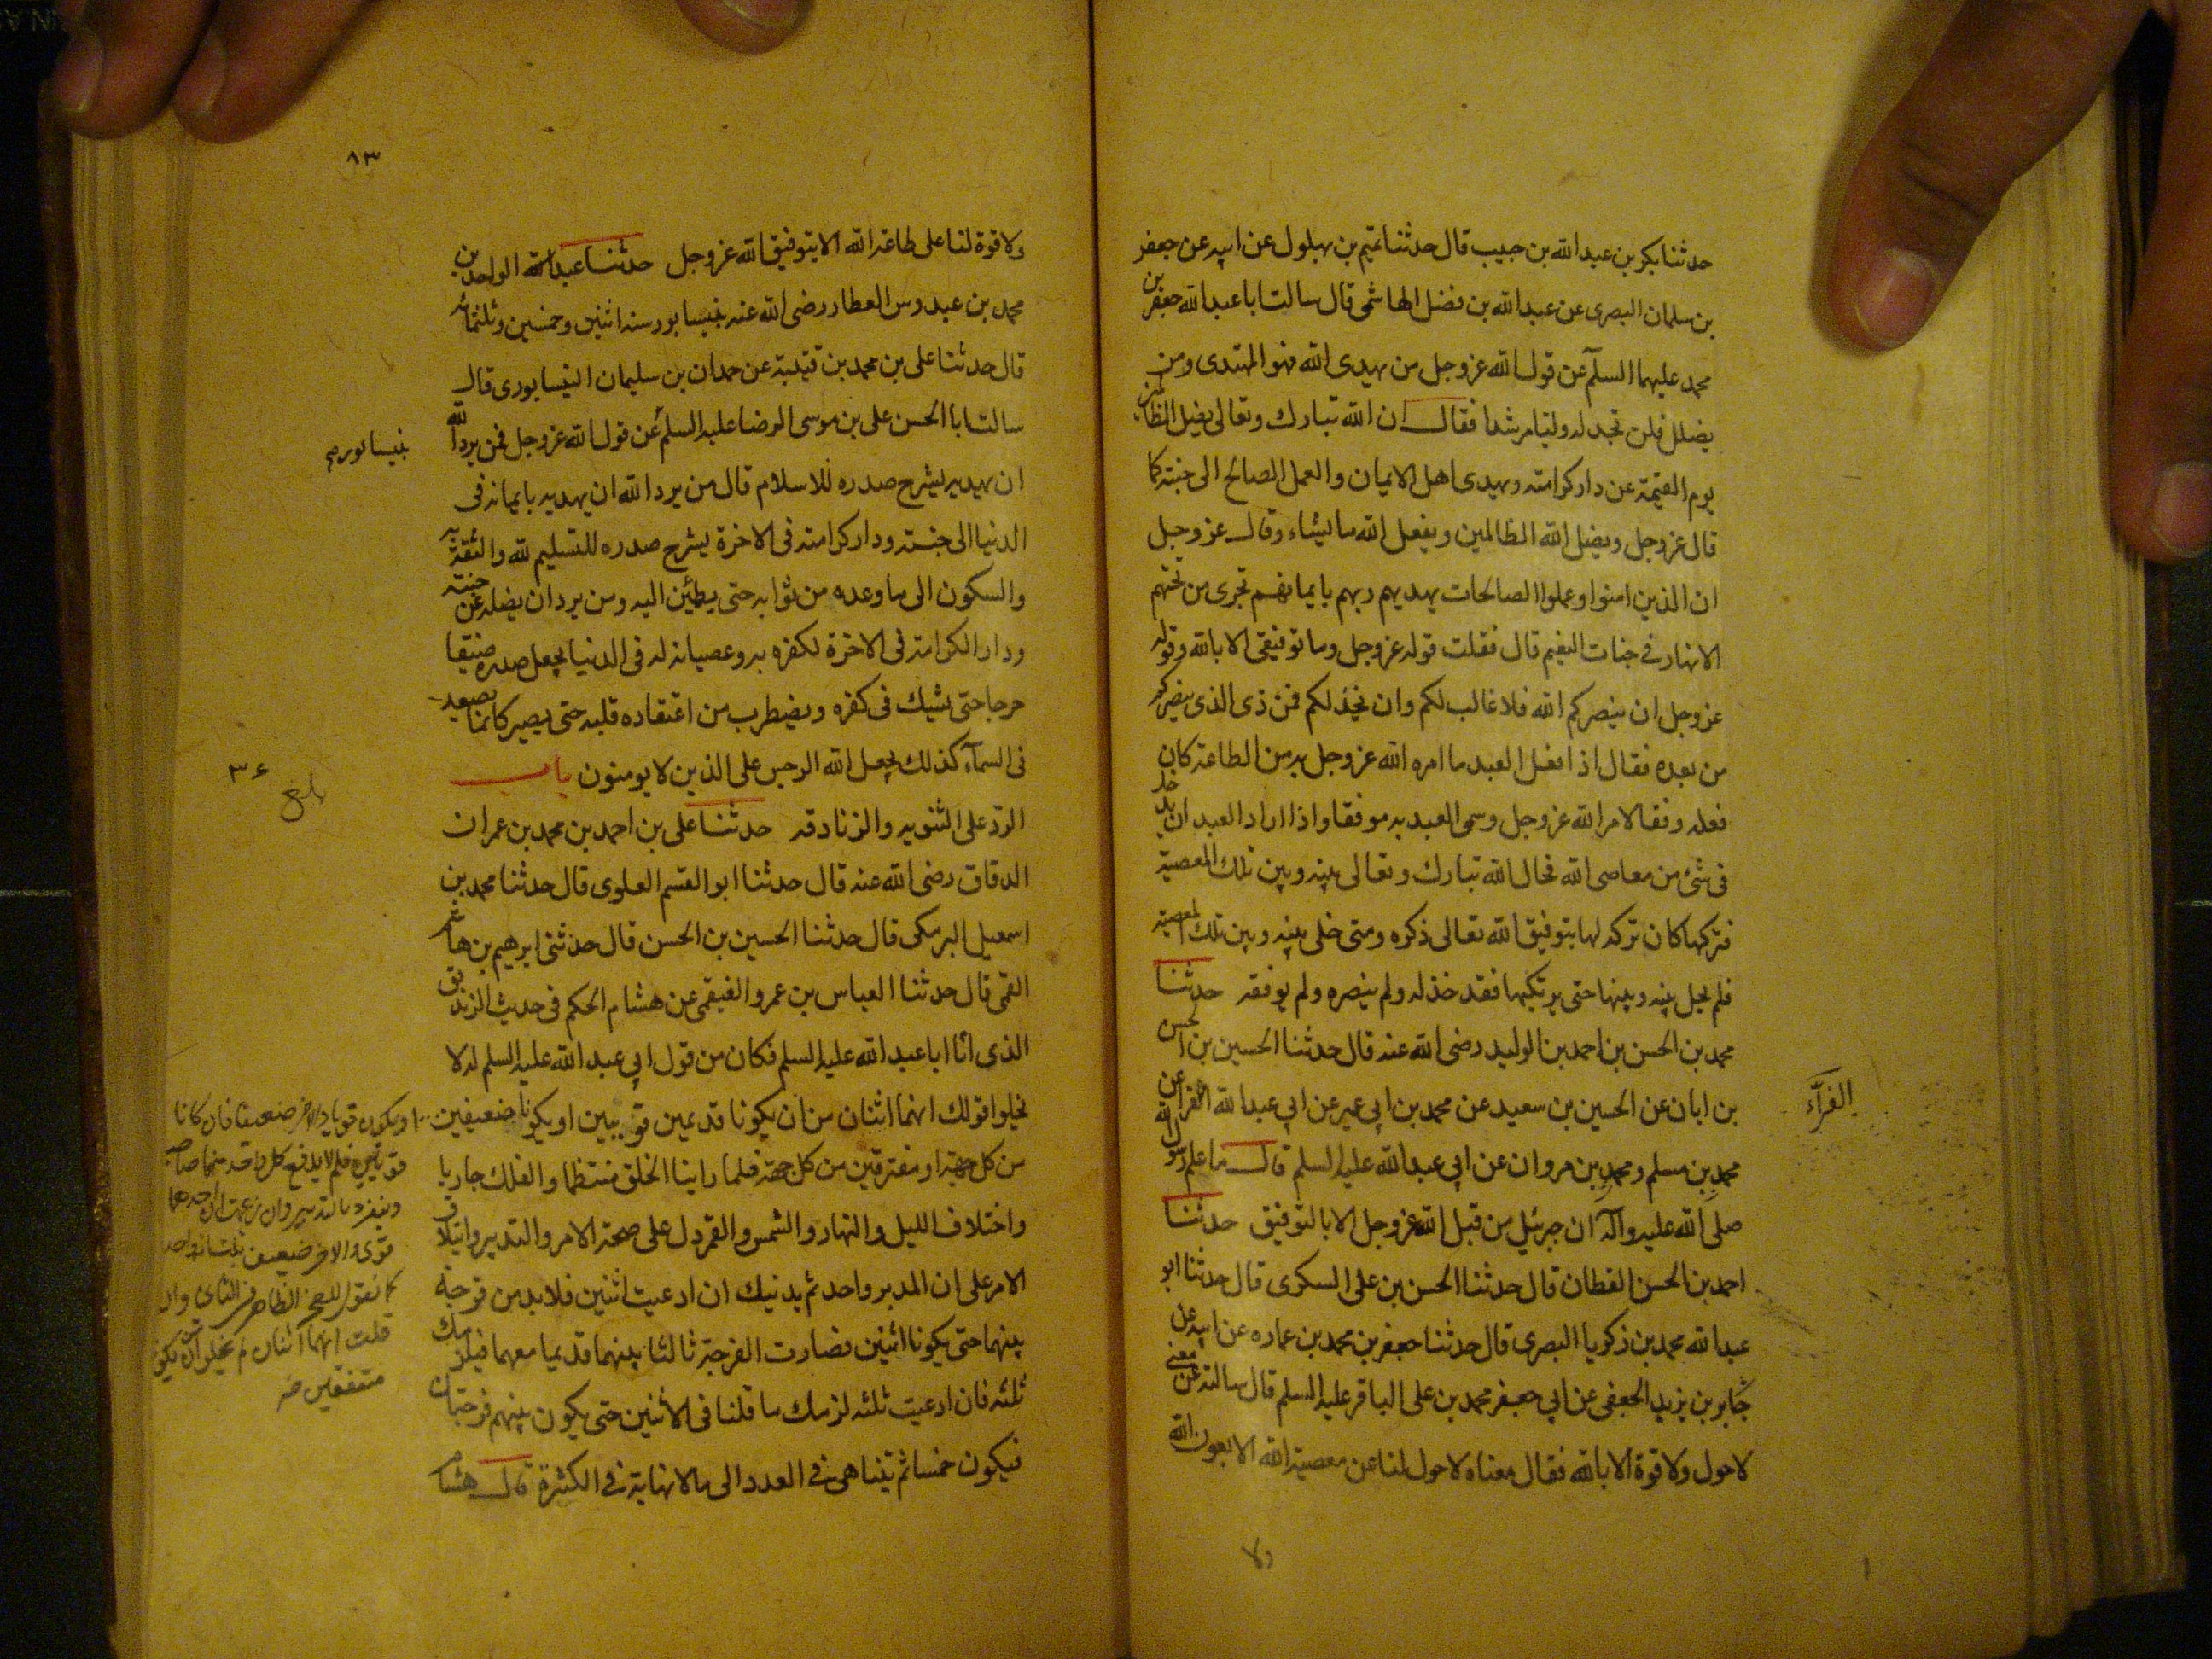 حدثنا بكر بن عبد الله بن حبيب قال حدثنا تميم بن بهلول عن ابيه عن جعفر
بن سلمان البصرى عن عبد الله بن فضل الهاشمى قال سالت ابا عبد الله جعفر بن
محمد عليهما السلم عن قول الله عز وجل من يهدى الله فهو المهتدى ومن
يضلل فلن تجد له وليا مرشدا فقال ان الله تبارك وتعالى يضل الظالمين
يوم القيمة عن دار كرامته ويهدى اهل الايمان والعمل الصالح الى جنته كما
قال عز وجل ويضل الله الظالمين ويفعل الله ما يشاء وقال عز وجل
ان الذين امنوا وعملوا الصالحات يهديهم ربهم بايمانهم تجرى من تحتهم
الانهار فى جنات النعيم قال فقلت قوله عز وجل وما توفيقى الا بالله وقوله
عز وجل ان ينصركم الله فلا غالب لكم وان يخذلكم فمن ذى الذى ينصركم
من بعده فقال اذا فعل العبد ما امره الله عز وجل به من الطاعة كان
فعله وفقا لامر الله عز وجل وسمى العبد به موفقا واذا اراد العبد ان يدخل
فى شئ من معاصى الله فحال الله تبارك وتعالى بينه وبين تلك المعصية
فتركها كان تركه لها بتوفيق الله تعالى ذكره ومتى خلى بينه وبين تلك المعصية
فلم يحل بينه وبينها حتى يرتكبها فقد خذله ولم ينصره ولم يوفقه حدثنا
محمد بن الحسن بن احمد بن الوليد رضى الله عنه قال حدثنا الحسين بن الحسن
بن ابان عن الحسين بن سعيد عن محمد بن ابى عمير عن ابى عبد الله الفرا عن
الفرآء
محمد بن مسلم ومحمد بن مروان عن ابى عبد الله عليه السلم قال ما علم رسول الله
صلى الله عليه وآله ان جبرئيل من قبل الله عز وجل الا بالتوفيق حدثنا
احمد بن الحسن القطان قال حدثنا الحسن بن على السكرى قال حدثنا ابو
عبد الله محمد بن زكريا البصرى قال حدثنا جعفر بن محمد بن عماره عن ابيه عن
جابر بن يزيد الجعفى عن ابى جعفر محمد بن على الباقر عليه السلم قال سالته عن معنى
لا حول ولا قوة الا بالله فقال معناه لا حول لنا عن معصية الله الا بعون الله
ولا
٨٣
ولا قوة لنا على طاعة الله الا بتوفيق الله عز وجل حدثنا عبد الواحد بن
محمد بن عبدوس العطار رضى الله عنه بنيسابور سنه اثنين وخمسين وثلثمائه
قال حدثنا على بن محمد بن قتيبة عن حمدان بن سليمان النيسابورى قال
سالت ابا الحسن على بن موسى الرضا عليه السلم عن قول الله عز وجل فمن يرد الله
بنيسابور
ان يهديه يشرح صدره للاسلام قال من يرد الله ان يهديه بايمانه فى
الدنيا الى جنته ودار كرامته فى الاخرة يشرح صدره للتسليم لله والثقة به
والسكون الى ما وعده من ثوابه حتى يطمئن اليه ومن يرد ان يضله عن جنته
ودار الكرامته فى الاخرة لكفره به وعصيانه له فى الدنيا يجعل صدره ضيقا
حرجا حتى يشك فى كفره ويضطرب من اعتقاده قلبه حتى يصير كانما يصعد
فى السمآء كذلك يجعل الله الرجس على الذين لا يومنون باب
بلغ
الرد على الثنويه والزنادقه حدثنا على بن احمد بن محمد بن عمران
الدقاق رضى الله عنه قال حدثنا ابو القسم العلوى قال حدثنا محمد بن
اسمعيل البرمكى قال حدثنا الحسين بن الحسن قال حدثنى ابرهيم بن هاشم
القمى قال حدثنا العباس بن عمرو الفيقمى عن هشام الحكم فى حديث الزنديق
الذى اتا ابا عبد الله عليه السلم فكان من قول ابى عبد الله عليه السلم له لا
يخلوا قولك انهما اثنان من ان يكونا قديمين قويين او يكونا ضعيفين
او يكون قويا والاخر ضعيفا فان كانا
قويين فلم لا يدفع كل واحد منهما صاحبه
ويتفرد بالتدبير وان زعمت ان احدهما
قوى والاخر ضعيف ثبت انه واحد
كما نقول للعجز الظاهر فى الثانى وان
قلت انهما اثنان لم يخلوا من ان يكونا
متفقين
من كل جهة او مفترقين من كل جهة فلما راينا الخلق منتظما والفلك جاريا
واختلاف الليل والنهار والشمس والقمر دل على صحة الامر والتدبير وايتلاف
الامر على ان المدبر واحد ثم يدنيك ان ادعيت اثنين فلا بد من فرجة
بينهما حتى يكونا اثنين فصارت الفرجة ثالثا بينهما قديما معهما فيلزمك
ثلثه فان ادعيت ثلثه لزمك ما قلنا فى الاثنين حتى يكون بينهم فرجتان
فيكون خمسا ثم يتناهى فى العدد الى ما لا نهاية فى الكثرة قال هشام